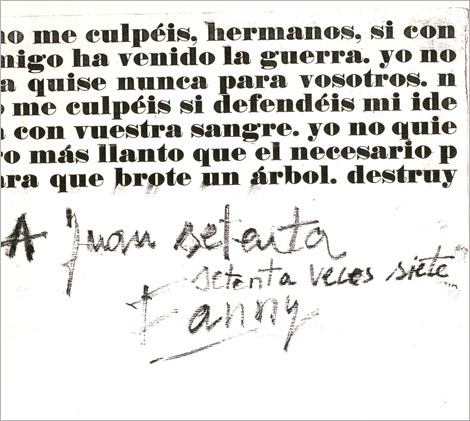 no me culpéis, hermanos, si con
migo ha venido la guerra. yo no
a quise nunca para vosotros. n
o me culpéis si defendéis mi ide
a con vuestra sangre. yo no quie
ro más llanto que el necesario p
ara que brote un árbol. destruy
A Juan setenta
setenta veces siete
Fanny